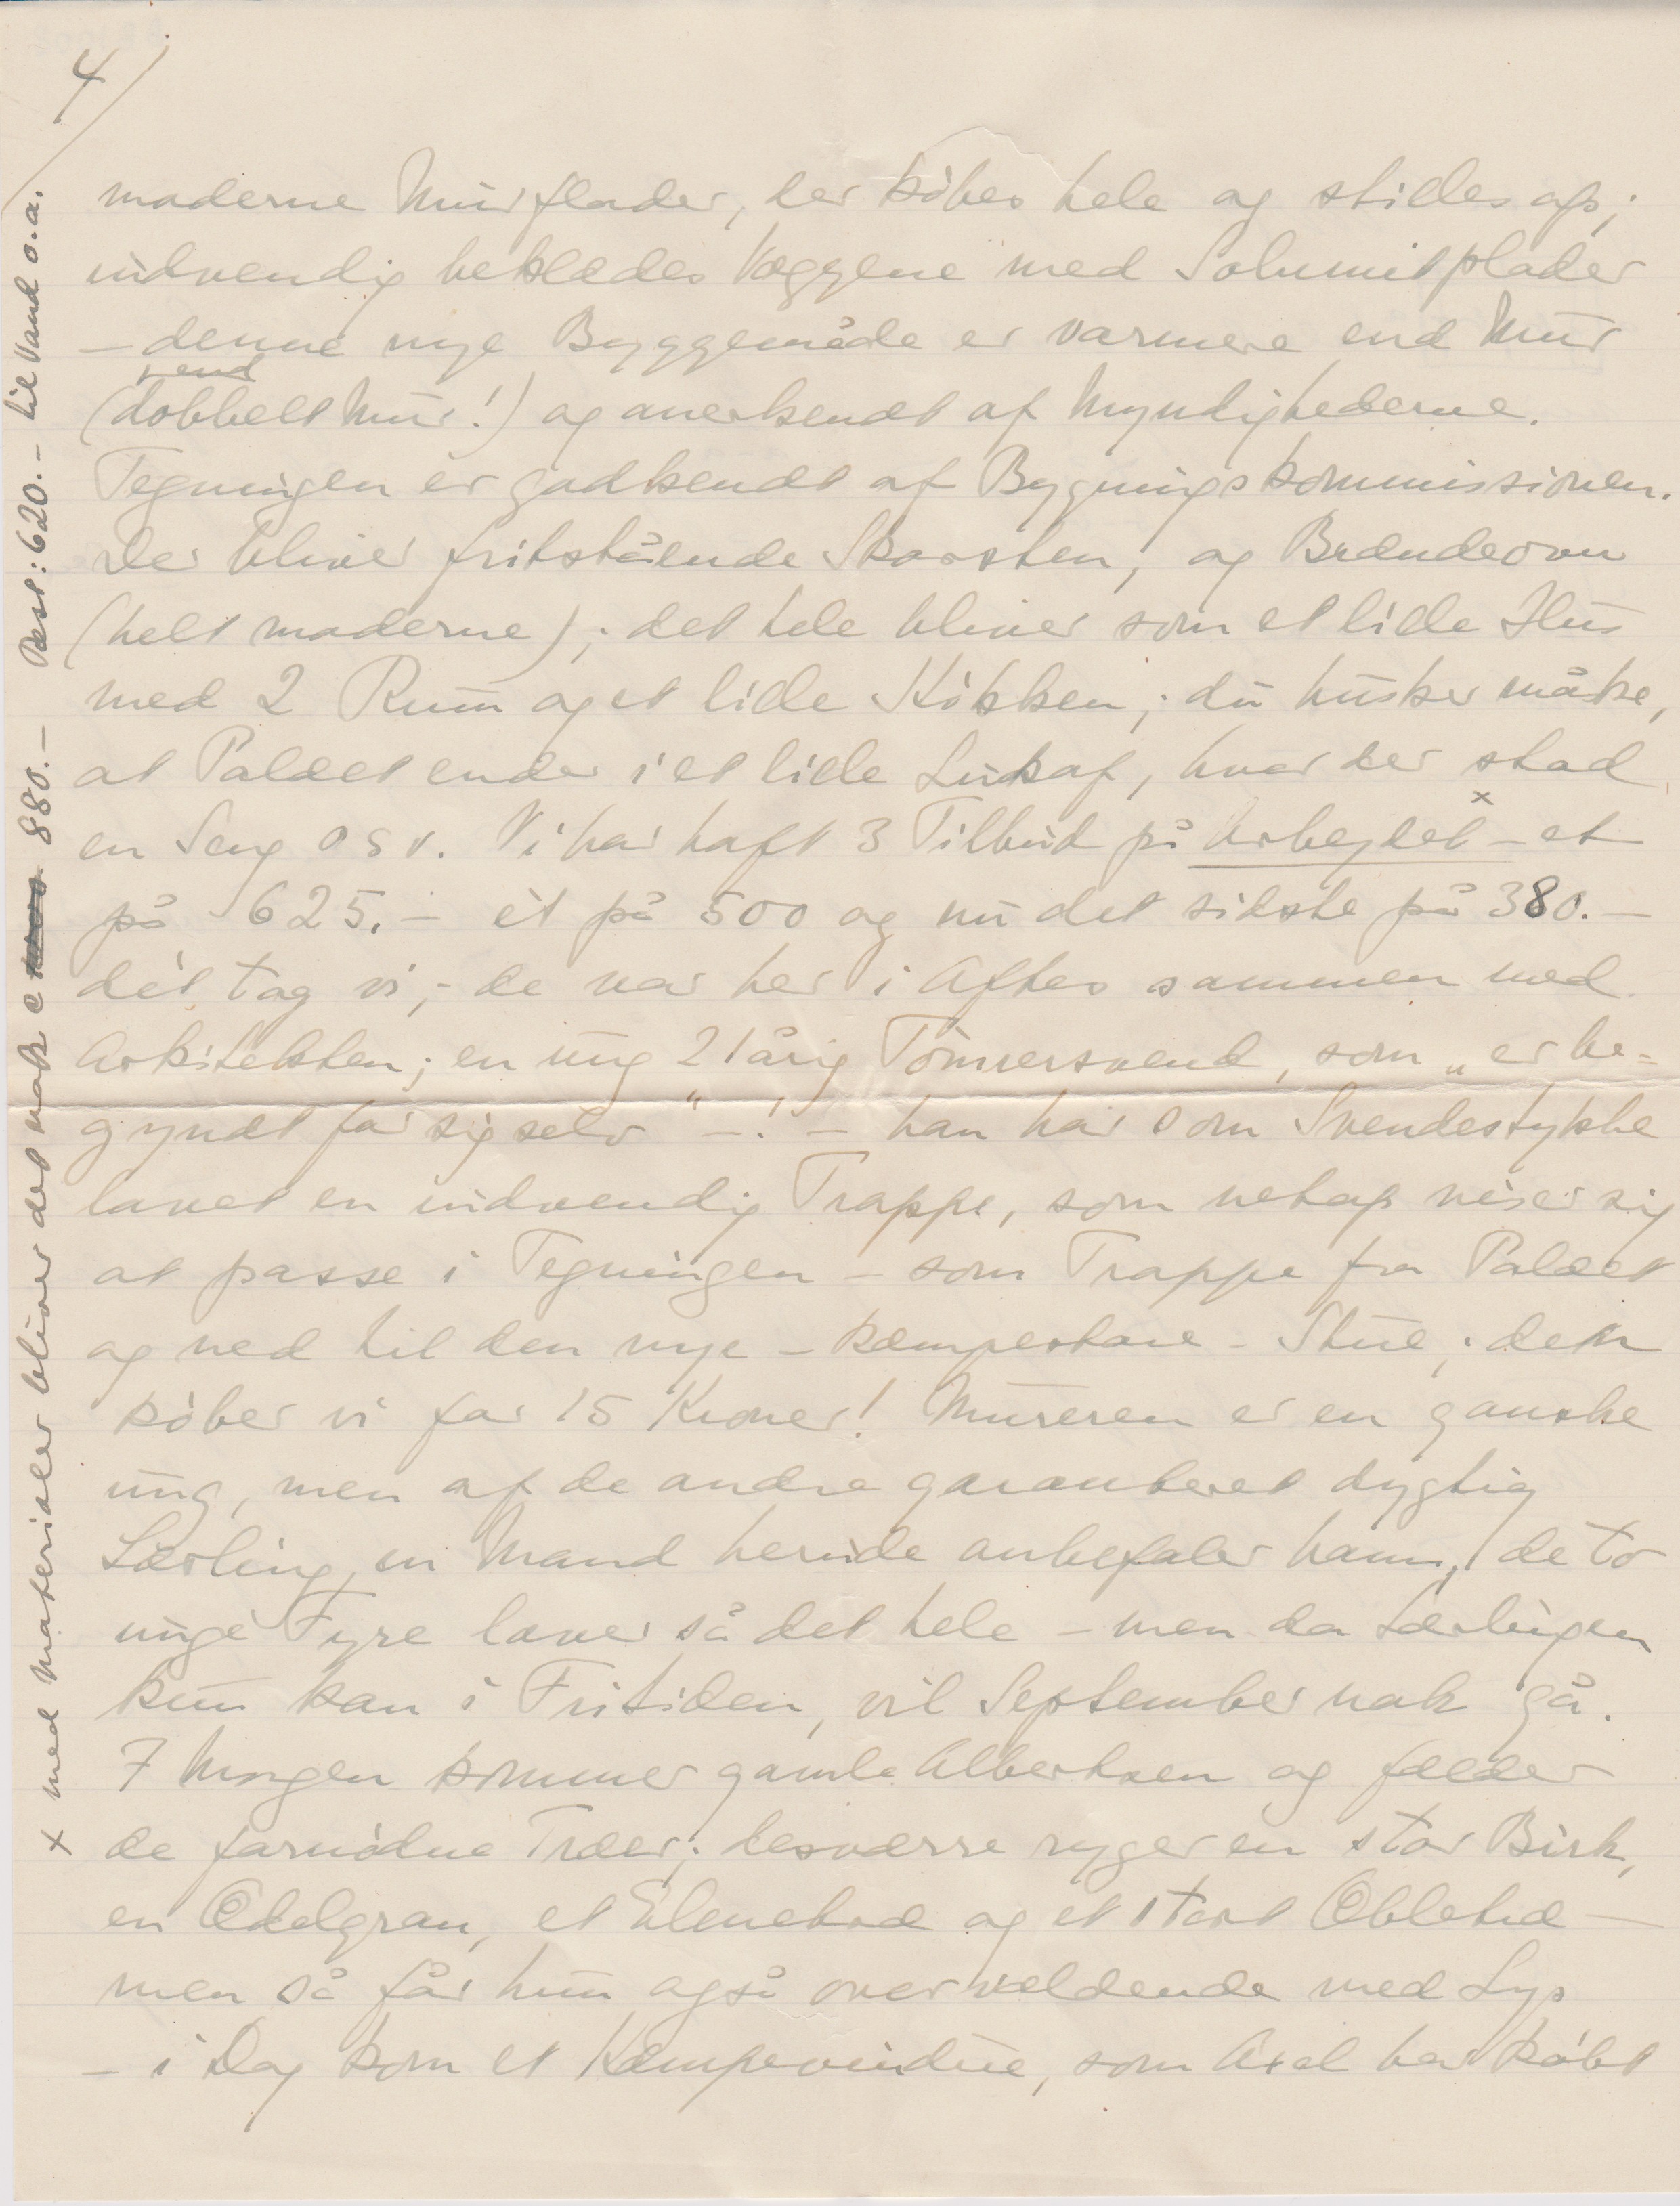 4/
moderne Murflader, der købes hele og stilles op;
indvendig beklædes Væggene med Solumitplader
– denne nye Byggemåde er varmere end Mur
(end dobbelt Mur!) og anerkendt af Myndighederne.
Tegningen er godkendt af Bygningskommissionen.
Der bliver fritstående Skorsten, og Brændeovn
(helt moderne); det hele bliver som et lille Hus
med 2 Rum og et lille Køkken; du husker måske,
at Palæet ender i et lille Lukaf, hvor der stod
en Seng o s v. Vi har haft 3 Tilbud på Arbejdet x – et
på 625.– ét på 500 og nu det sidste på 380.–
dét tog vi, – de var her i Aftes sammen med
Arkitekten; en ung 21 årig Tømrersvend, som „er be=
gyndt for sig selv" –! – han har som Svendestykke
lavet en indvendig Trappe, som netop viser sig
at passe i Tegningen – som Trappe fra Palæet
og ned til den nye – kæmpestore – Stue; den
køber vi for 15 Kroner! Mureren er en ganske
ung, men af de andre garanteret dygtig
Lærling, en Mand herude anbefaler ham, de to
unge Fyre laver så det hele – men da Lærlingen
kun kan i Fritiden, vil September nok gå.
I Morgen kommer gamle Albertsen og fælder
de fornødne Træer; desværre ryger en stor Birk,
en Ædelgran, et Blenetræ og et stort Æbletræ –
men så får hun også overvældende med Lys
– i Dag kom et Kæmpevindue, som Axel har købt
x med Materialer bliver det nok c 880.– Rest: 620.– til Vand o.a.